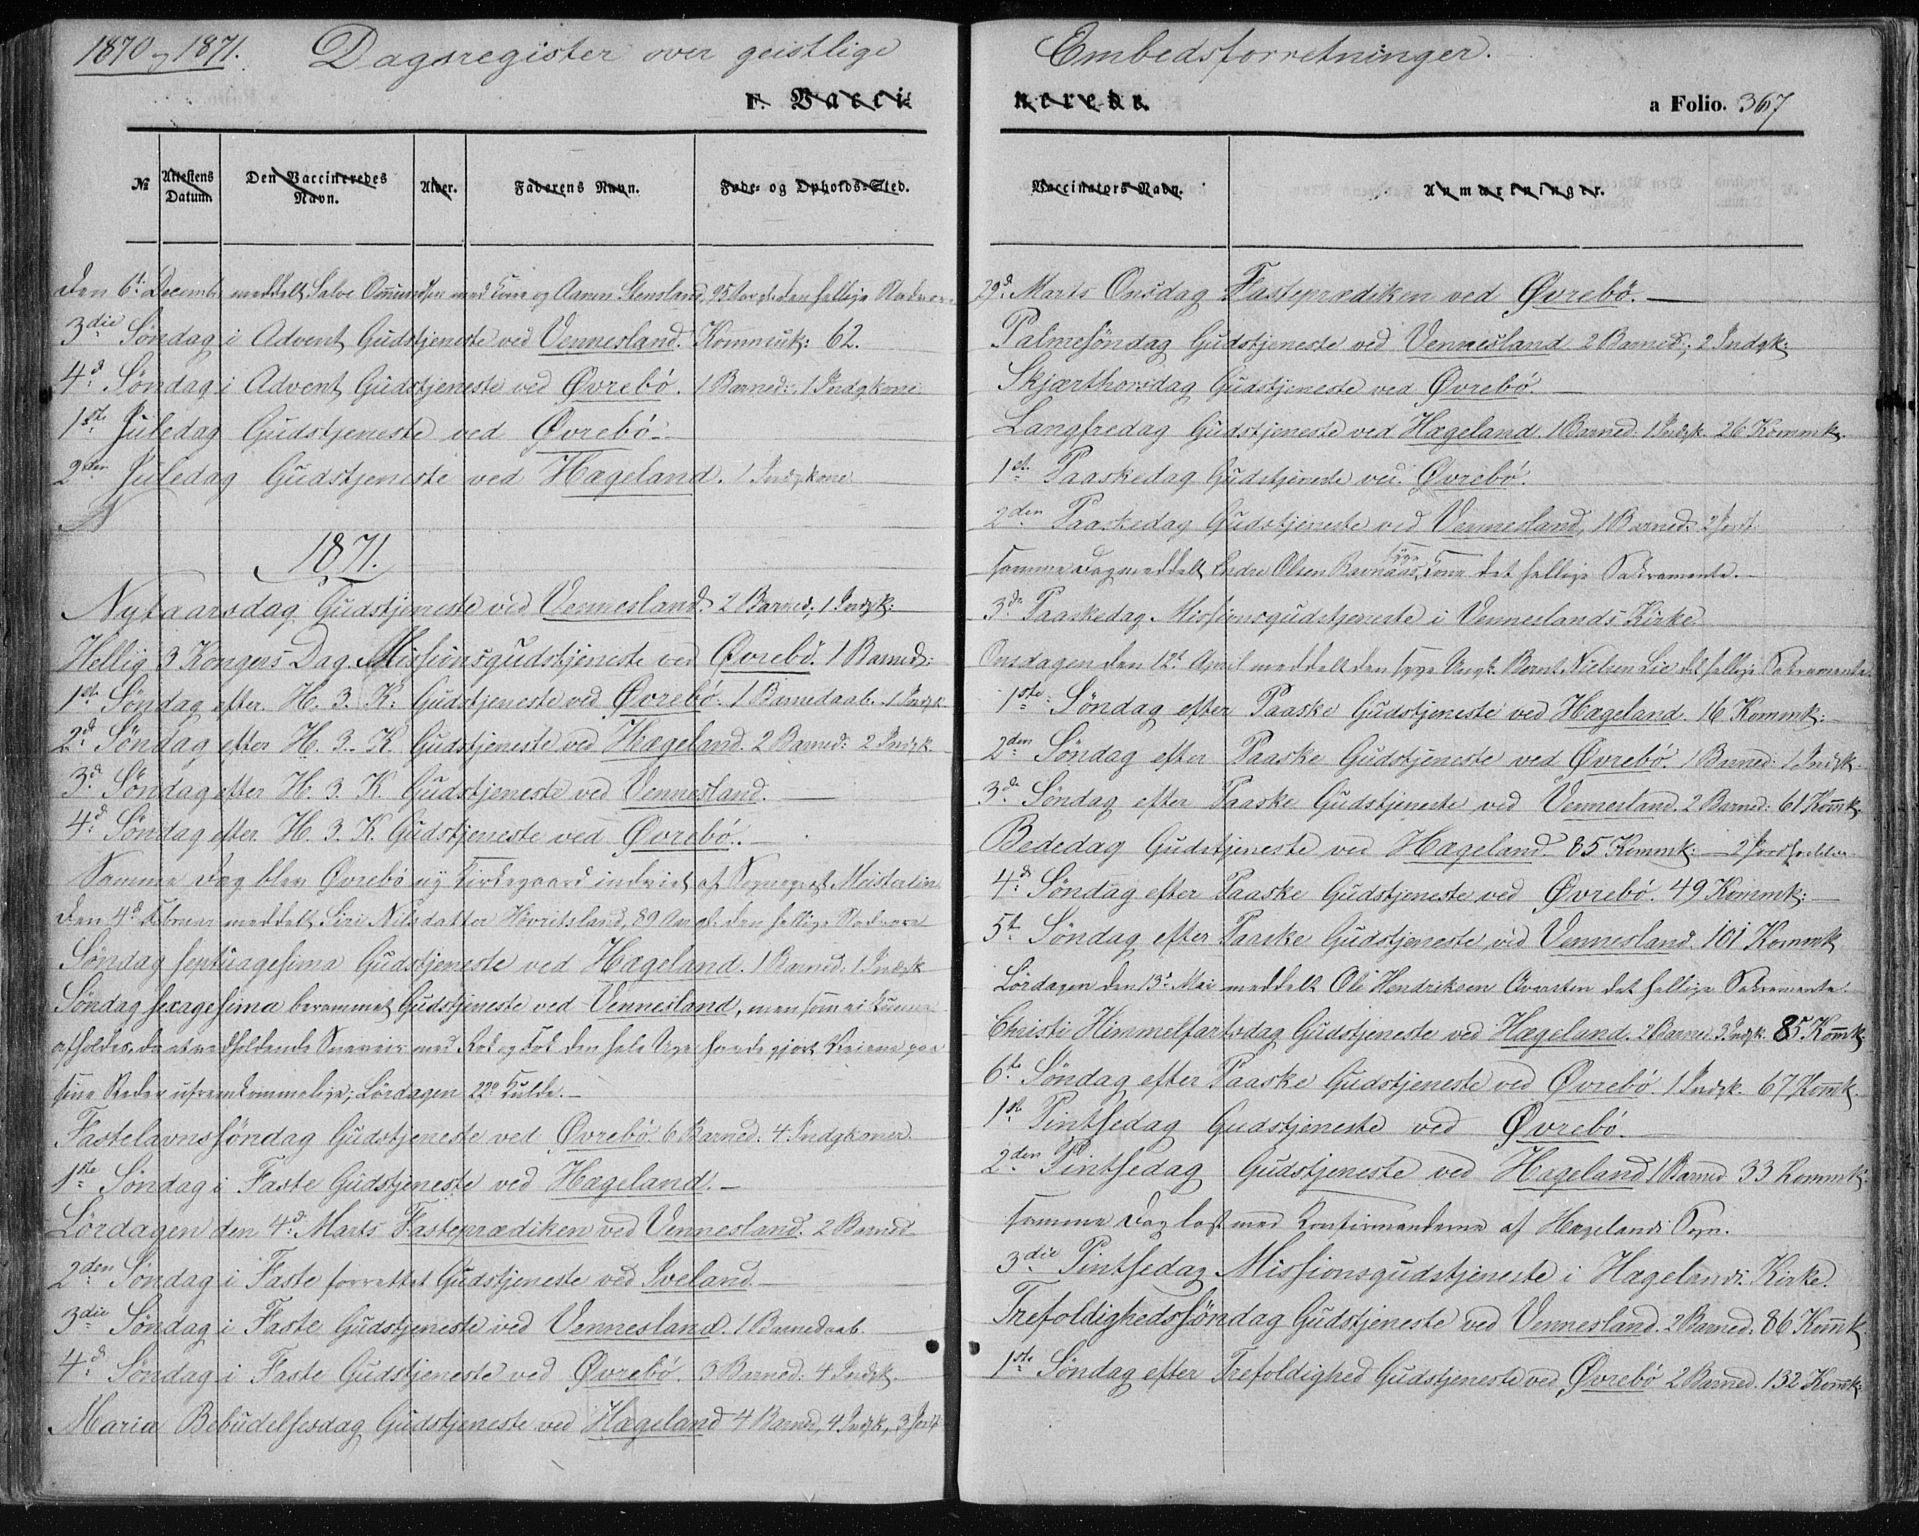 1870 og 1871. Dagsregister over geistlige Embedsforretninger.
F. Vaccinerede. a Folio. 367
№ Attestens Datum. Den Vaccineredes Navn. Alder. Faderens Navn. Føde- og Opholds-Sted. Vaccinators Navn. Anmærkninger.
Den 6te Decemb. meddelt Salve Omundsen med Kone og Aanen Stensland, 95 Aar gl. den hellige Nadvere
3die Søndag i Advent Gudstjeneste ved Vennesland. Kommuk: 62.
4d. Søndag i Advent Gudstjeneste ved Øvrebö. 1 Barned: 1 Indgkone.
1ste Juledag Gudstjeneste ved Øvrebö.
2den Juledag Gudstjeneste ved Hægeland. 1 Indgkone
N
1871.
Nytaarsdag Gudstjeneste ved Vennesland. 2 Barned, 1 Indgk:
Hellig 3 Kongers Dag Missionsgudstjeneste ved Øvrebö. 1 Barned:
1st. Søndag efter H. 3. K: Gudstjeneste ved Øvrebö. 1 Barnedaab. 1 Indgk
2d. Søndag efter H. 3. K. Gudstjeneste ved Hægeland. 2 Barned: 2 Indgk
3d. Söndag efter H. 3. K. Gudstjeneste ved Vennesland.
4d. Søndag efter H. 3. K Gudstjeneste ved Øvrebö.
Samme Dag blev Øvrebö ny Kirkegaard indviet af Sognepræst Meisterlin
Den 4d Februar meddelt Siri Nilsdatter 89 Aar gl. den hellige Nadvere
Søndag septuagesima Gudstjeneste ved Hægeland. 1 Barned: 1 Indgk
Søndag sexagesima berammet Gudstjeneste ved Vennesland, men som ei kunne
afholdes, da vedholdende Sneveir med og Fok den hele Uge havde gjort Veiene paa
sine Steder ufremkommelige; Lördagen 22° Kulde.
Fastelavnssöndag Gudstjeneste ved Øvrebö. 6 Barned. 4 Indgkoner.
1ste Søndag i Faste Gudstjeneste ved Hægeland.
Lördagen den 4d. Marts Fasteprædiken ved Vennesland. 2 Barned
2den Søndag i Faste forrettet Gudstjeneste ved Iveland
3die Søndag i Faste Gudstjeneste ved Vennesland. 1 Barnedaab.
4d. Søndag i Faste Gudstjeneste ved Øvrebö. 3 Barned: 4 Indgk.
Maria Bebudelsesdag Gudstjeneste ved Hægeland 4 Barned, 4 Indgk, 3 Jordf
29d. Marts Onsdag Fasteprædiken ved Øvrebö.
Palmesöndag Gudstjeneste ved Vennesland 2 Barned, 2 Indgk:
Skjærthorsdag Gudstjeneste ved Øvrebö.
Langfredag Gudstjeneste ved Hægeland. 1 Barned. 1 Indgk. 26 Kommk.
1st. Paaskedag Gudstjeneste ved Øvrebö.
2den Paaskedag Gudstjeneste ved Vennesland, 1 Barned: 2 Jordf.
samme Dag meddelt Endre Olsen Ravnaas syge Kone det hellige Sakramente.
3d. Paaskedag Missionsgudstjeneste i Venneslands Kirke
Onsdagen den 12t April meddelt den syge Ungk. Bernt Nielsen Lie det hellige Sakramente.
1ste Søndag efter Paaske Gudstjeneste ved Hægeland. 16 Kommk:
2den Søndag efter Paaske Gudstjeneste ved Øvrebö. 1 Barned: 1 Indgk.
3d. Søndag efter Paaske Gudstjeneste ved Vennesland. 2 Barned: 61 Kommk.
Bededag Gudstjeneste ved Hægeland. 85 Kommk: 2 Jordfæstelser
4d. Søndag efter Paaske Gudstjeneste ved Øvrebö. 49 Kommk:
5t. Søndag efter Paaske Gudstjeneste ved Vennesland 101 Kommk
Lördagen den 13d. Mai meddelt Ole Hendriksen det hellige Sakramente.
Christi Himmelfartsdag Gudstjeneste ved Hægeland. 2 Barned. 3 Indgk. 85 Kommk.
6te Søndag efter Paaske Gudstjeneste ved Øvrebö. 1 Indgk. 67 Kommk.
1st. Pintsedag Gudstjeneste ved Øvrebö.
2den Pintsedag Gudstjeneste ved Hægeland 1 Barned 33 Kommk.
samme Dag læst med Konfirmanderne af Hægelands Sogn.
3die Pintsedag Missionsgudstjeneste i Hægelands Kirke.
Trefoldighedssöndag Gudstjeneste ved Vennesland. 2 Barned. 86 Kommk.
1ste Søndag efter Trefoldighed Gudstjeneste ved Øvrebö 2 Barned. 132 Kommk.